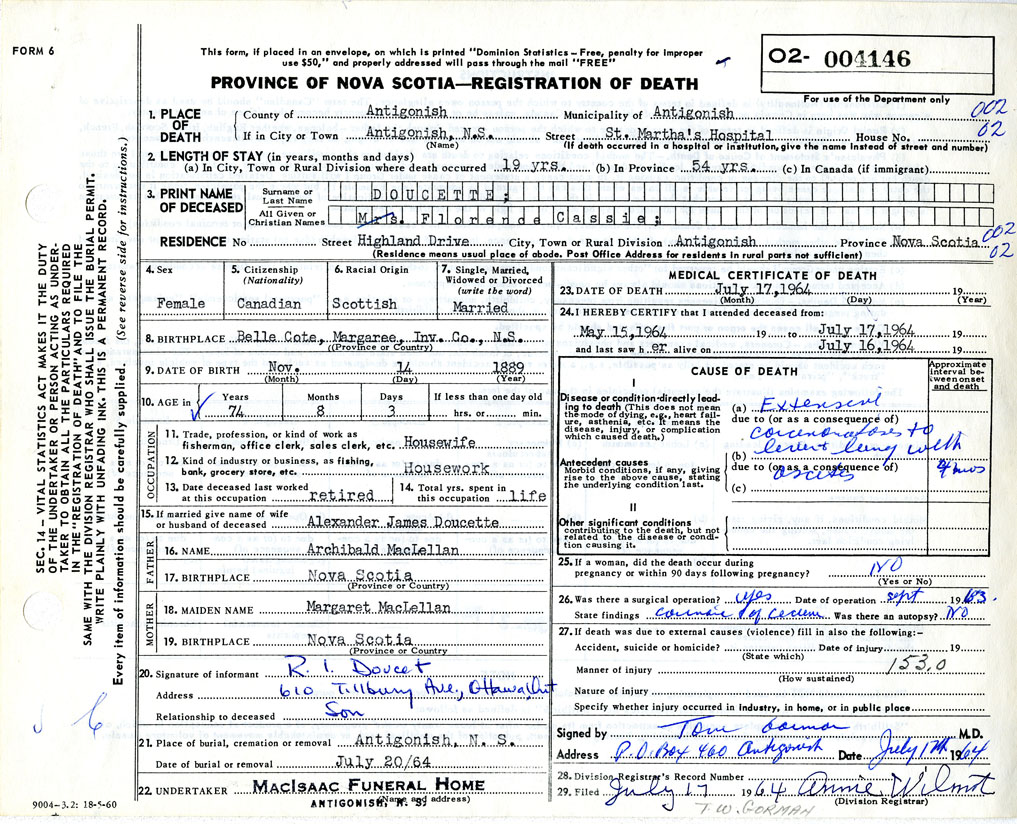 FORM 6
This form, if placed in an envelope, on which is printed "Dominion Statistics – Free, penalty for improper
use $50," and properly addressed will pass through the mail "FREE"
PROVINCE OF NOVA SCOTIA—REGISTRATION OF DEATH
02- 004146
For use of the Department only
SEC. 14 – VITAL STATISTICS ACT MAKES IT THE DUTY
OF THE UNDERTAKER OR PERSON ACTING AS UNDER-
TAKER TO OBTAIN ALL THE PARTICULARS REQUIRED
IN THE "REGISTRATION OF DEATH" AND TO FILE THE
SAME WITH THE DIVISION REGISTRAR WHO SHALL ISSUE THE BURIAL PERMIT.
WRITE PLAINLY WITH UNFADING INK. THIS IS A PERMANENT RECORD.
Every item of information should be carefully supplied. (See reverse side for instructions.)
1. PLACE OF DEATH
County of Antigonish Municipality of Antigonish 002
If in City or Town Antigonish, N.S. Street St. Martha's Hospital House No. 02
(Name) (If death occurred in a hospital or institution, give the name instead of street and number)
2. LENGTH OF STAY (in years, months and days)
(a) In City, Town or Rural Division where death occurred 19 yrs. (b) In Province 54 yrs. (c) In Canada (if immigrant)
3. PRINT NAME OF DECEASED
Surname or Last Name DOUCETTE;
All Given or Christian Names Mrs. Florence Cassie;
RESIDENCE No Street Highland Drive City, Town or Rural Division Antigonish Province Nova Scotia 002
(Residence means usual place of abode. Post Office Address for residents in rural parts not sufficient) 02
4. Sex Female
5. Citizenship (Nationality) Canadian
6. Racial Origin Scottish
7. Single, Married, Widowed or Divorced (write the word) Married
8. BIRTHPLACE Belle Cote, Margaree, Inv. Co., N.S.
(Province or Country)
9. DATE OF BIRTH Nov. 14 1889
(Month) (Day) (Year)
10. AGE in Years 74 Months 8 Days 3 If less than one day old hrs. or min.
OCCUPATION
11. Trade, profession, or kind of work as fisherman, office clerk, sales clerk, etc. Housewife
12. Kind of industry or business, as fishing, bank, grocery store, etc. Housework
13. Date deceased last worked at this occupation retired
14. Total yrs. spent in this occupation life
15. If married give name of wife or husband of deceased Alexander James Doucette
FATHER
16. NAME Archibald MacLellan
17. BIRTHPLACE Nova Scotia
(Province or Country)
MOTHER
18. MAIDEN NAME Margaret MacLellan
19. BIRTHPLACE Nova Scotia
(Province or Country
20. Signature of informant R. I. Doucet
Address 610 Tillbury Ave., Ottawa, Ont
Relationship to deceased Son
21. Place of burial, cremation or removal Antigonish, N. S.
Date of burial or removal July 20/64
22. UNDERTAKER MacIsaac Funeral Home
ANTIGONISH, N. S.
(Name and address)
9004–3.2: 18-5-60
MEDICAL CERTIFICATE OF DEATH
23. DATE OF DEATH July 17, 1964 19
(Month) (Day) (Year)
24. I HEREBY CERTIFY that I attended deceased from:
May 15, 1964 19 to July 17, 1964 19
and last saw h er alive on July 16, 1964 19
CAUSE OF DEATH
Approximate interval between onset and death
I
Disease or condition directly leading to death (This does not mean the mode of dying, e.g., heart failure, asthenia, etc. It means the disease, injury, or complication which caused death.)
(a) Extensive
due to (or as a consequence of)
carcinomatoses to
(b) lung with
due to (or as a consequence of)
ascites
(c)
4 mos
Antecedent causes
Morbid conditions, if any, giving rise to the above cause, stating the underlying condition last.
II
Other significant conditions
contributing to the death, but not related to the disease or condition causing it.
25. If a woman, did the death occur during
pregnancy or within 90 days following pregnancy? NO
(Yes or No)
26. Was there a surgical operation? yes Date of operation sept 1963.
State findings of cecum Was there an autopsy? NO
27. If death was due to external causes (violence) fill in also the following:–
Accident, suicide or homicide? Date of injury 19
(State which)
Manner of injury 153.0
(How sustained)
Nature of injury
Specify whether injury occurred in industry, in home, or in public place
Signed by Tom Gorman M.D.
Address P.O. Box 460 Antigonish Date July 17th 1964
28. Division Registrar's Record Number
29. Filed July 17 1964 Annie Wilmot
(Division Registrar)
T.W. GORMAN